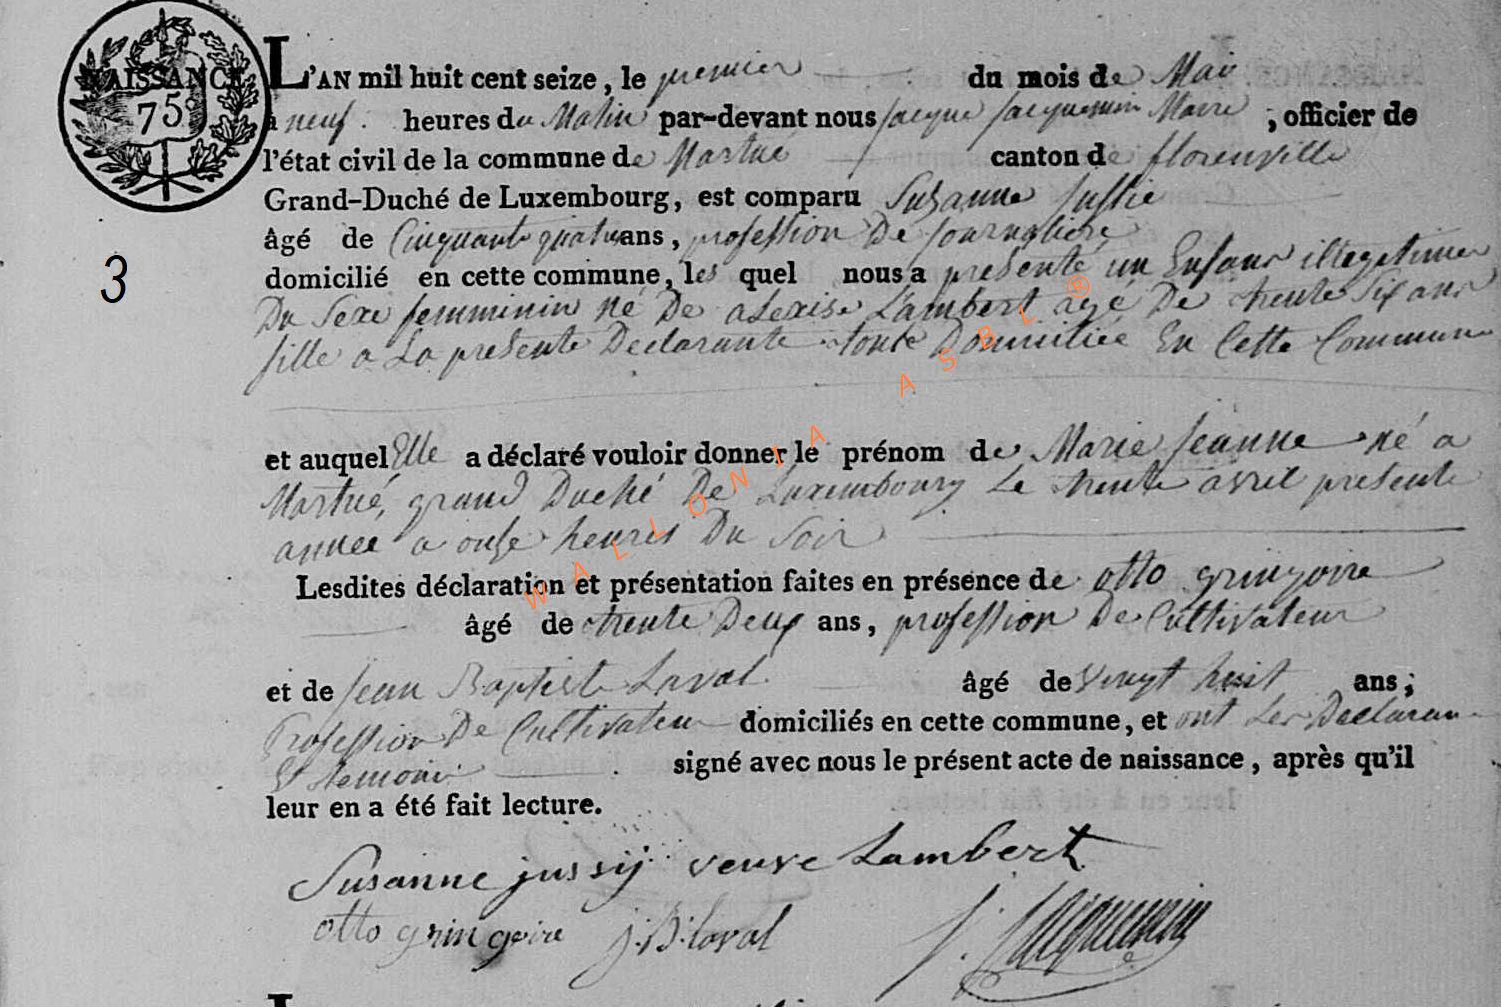 NAISSANCE
75.
L'AN mil huit cent seize, le premier du mois de Mai
à neuf. heures du Matin par-devant nous jacque jacquemin Maire ; officier de
l'état civil de la commune de Martué canton de florenville
Grand-Duché de Luxembourg, est comparu Susanne jussie
âgé de Cinquante quatre ans, profession De journaliere
3
domicilié en cette commune, les quel nous a presenté un Enfant illegetime
Du Sexe femminin né De alexise Lambert agé De trente Six ans
fille a La presente Declarante toute Domiciliée En Cette Commune
et auquel Elle a déclaré vouloir donner le prénom de Marie jeanne né a
Martué, grand Duché De Luxembourg Le trente avril presente
année a onse heures Du Soir
Lesdites déclaration et présentation faites en présence de otto gringoire
âgé de trente Deux ans, profession De Cultivateur
et de jean Baptiste Laval âgé de vingt huit ans;
Profession De Cultivateur domiciliés en cette commune, et ont Les Declarant
Et temoin signé avec nous le présent acte de naissance, après qu'il
leur en a été fait lecture.
Susanne jussij veuve Lambert
otto gringoire j:B: laval j: jacquemin
WALLONIA ASBL ®